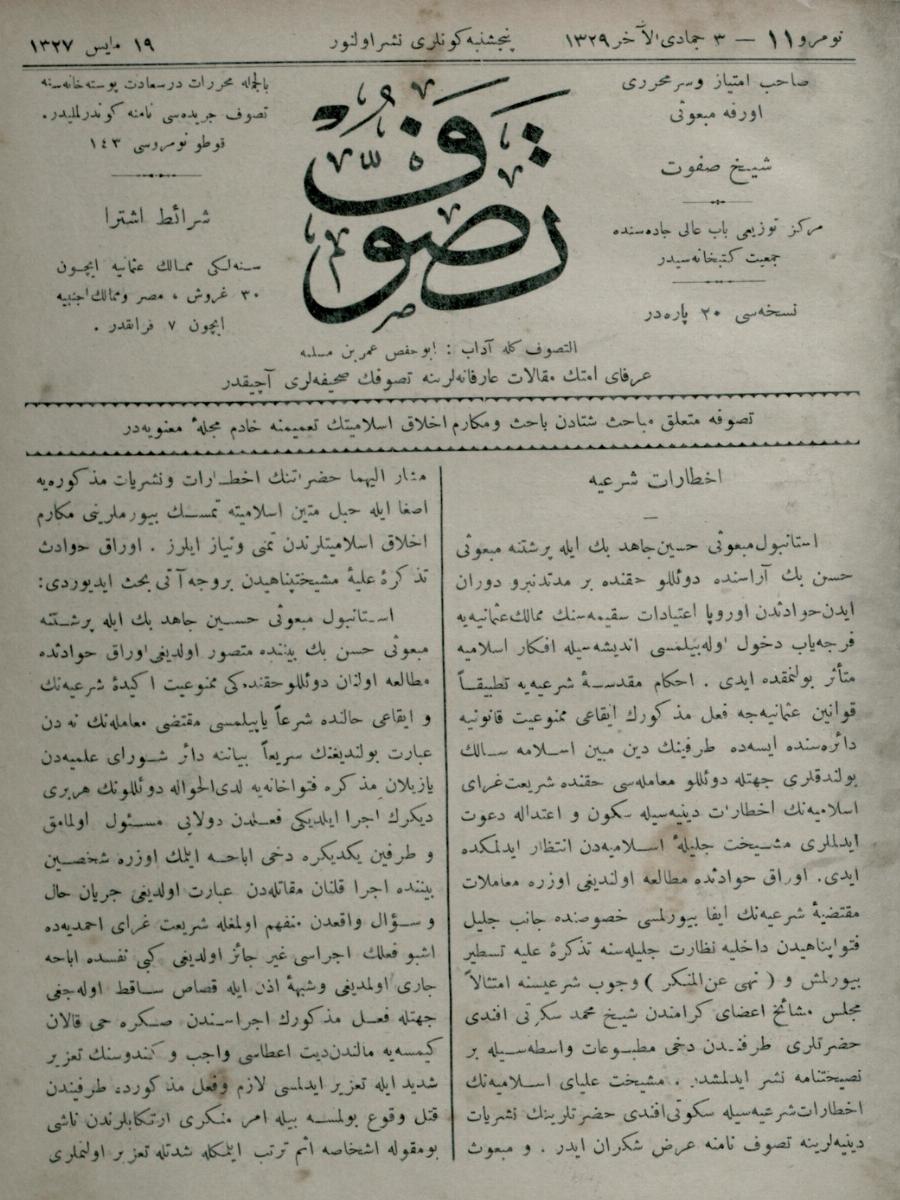 نومرو ١١ — ٣ جمادی الآخر ١٣٢٩
پنجشنبه کونلری نشر اولنور
١٩ مایس ١٣٢٧
صاحب امتیاز وسرمحرری
اورفه مبعوثی
شیخ صفوت
مرکز توزیعی باب عالی جاده‌سنده
جمعیت کتبخانه‌سیدر
نسخه‌سی ٢٠ پاره‌در
تصوف
بالجمله محررات درسعادت پوسته‌خانه‌سنه
تصوف جریده‌سی نامنه کوندرلملیدر.
قوطو نومروسی ١٤٣
شرائط اشترا
سنه‌لکی ممالک عثمانیه ایچون
٣٠ غروش ، مصر وممالک اجنبیه
ایچون ٧ فرانقدر .
التصوف کله آداب : ابوحفص عمر بن مسلمه
عرفای امتك مقالات عارفانه‌لرینه تصوفك صحیفه‌لری آچیقدر
تصوفه متعلق مباحث شتادن باحث ومکارم اخلاق اسلامیتك تعمیمنه خادم مجلهٔ معنویه‌در
اخطارات شرعیه
استانبول مبعوثی حسین جاهد بك ایله پرشتنه مبعوثی
حسن بك آراسنده دوئللو حقنده بر مدتدنبرو دوران
ایدن حوادثدن اوروپا اعتیادات سقیمه‌سنك ممالك عثمانیه‌یه
فرجه‌یاب دخول اوله‌بیلمسی اندیشه‌سیله افکار اسلامیه
متأثر بولنمقده ایدی . احکام مقدسهٔ شرعیه‌یه تطبیقاً
قوانین عثمانیه‌جه فعل مذکورك ایقاعی ممنوعیت قانونیه
دائره‌سنده ایسه‌ده طرفینك دین مبین اسلامه سالك
بولندقلری جهتله دوئللو معامله‌سی حقنده شریعت غرای
اسلامیه‌نك اخطارات دینیه‌سیله سکون و اعتداله دعوت
ایدلملری مشیخت جلیلهٔ اسلامیه‌دن انتظار ایدلمکده
ایدی. اوراق حوادثده مطالعه اولندیغی اوزره معاملات
مقتضیهٔ شرعیه‌نك ایفا بیورلمسی خصوصنده جانب جلیل
فتواپناهیدن داخلیه نظارت جلیله‌سنه تذکرهٔ علیه تسطیر
بیورلمش و ( نهی عن المنکر ) وجوب شرعیسنه امتثالاً
مجلس مشائخ اعضای کرامندن شیخ محمد سکوتی افندی
حضرتلری طرفندن دخی مطبوعات واسطه‌سیله بر
نصیحتنامه نشر ایدلمشدر . مشیخت علیای اسلامیه‌نك
اخطارات شرعیه‌سیله سکوتی افندی حضرتلرینك نشریات
دینیه‌لرینه تصوف نامنه عرض شکران ایدر . و مبعوث
مشار الیهما حضراتنك اخطارات ونشریات مذکوره‌یه
اصغا ایله حبل متین اسلامیته تمسك بیورملرینی مکارم
اخلاق اسلامیتلرندن تمنی ونیاز ایلرز . اوراق حوادث
تذکرهٔ علیهٔ مشیختپناهیدن بروجه آتی بحث ایدیوردی:
استانبول مبعوثی حسین جاهد بك ایله پرشتنه
مبعوثی حسن بك بیننده متصور اولدیغی اوراق حوادثده
مطالعه اولنان دوئللو حقنده‌کی ممنوعیت اکیدهٔ شرعیه‌نك
و ایقاعی حالنده شرعاً یاپیلمسی مقتضی معامله‌نك نه دن
عبارت بولندیغنك سریعاً بیاننه دائر شورای علمیه‌دن
یازیلان مذکره فتواخانه‌یه لدی‌الحواله دوئللونك هربری
دیکرك اجرا ایلدیکی فعلمدن دولایی مسئول اولمامق
و طرفین یکدیکره دخی اباحه ایتمك اوزره شخصین
بیننده اجرا قلنان مقاتله‌دن عبارت اولدیغی جریان حال
و سؤال واقعدن منفهم اولمغله شریعت غرای احمدیه‌ده
اشبو فعلك اجراسی غیر جائز اولدیغی کبی نفسده اباحه
جاری اولمدیغی وشبههٔ اذن ایله قصاص ساقط اوله‌جغی
جهتله فعل مذکورك اجراسندن صکره حی قالان
کیمسه‌یه مالندن دیت اعطاسی واجب و کندوسنك تعزیر
شدید ایله تعزیر ایدلمسی لازم وفعل مذکورده طرفیندن
قتل وقوع بولمسه بیله امر منکری ارتکابلرندن ناشی
بومقوله اشخاصه اثم ترتب ایتمکله شدتله تعزیر اولنملری